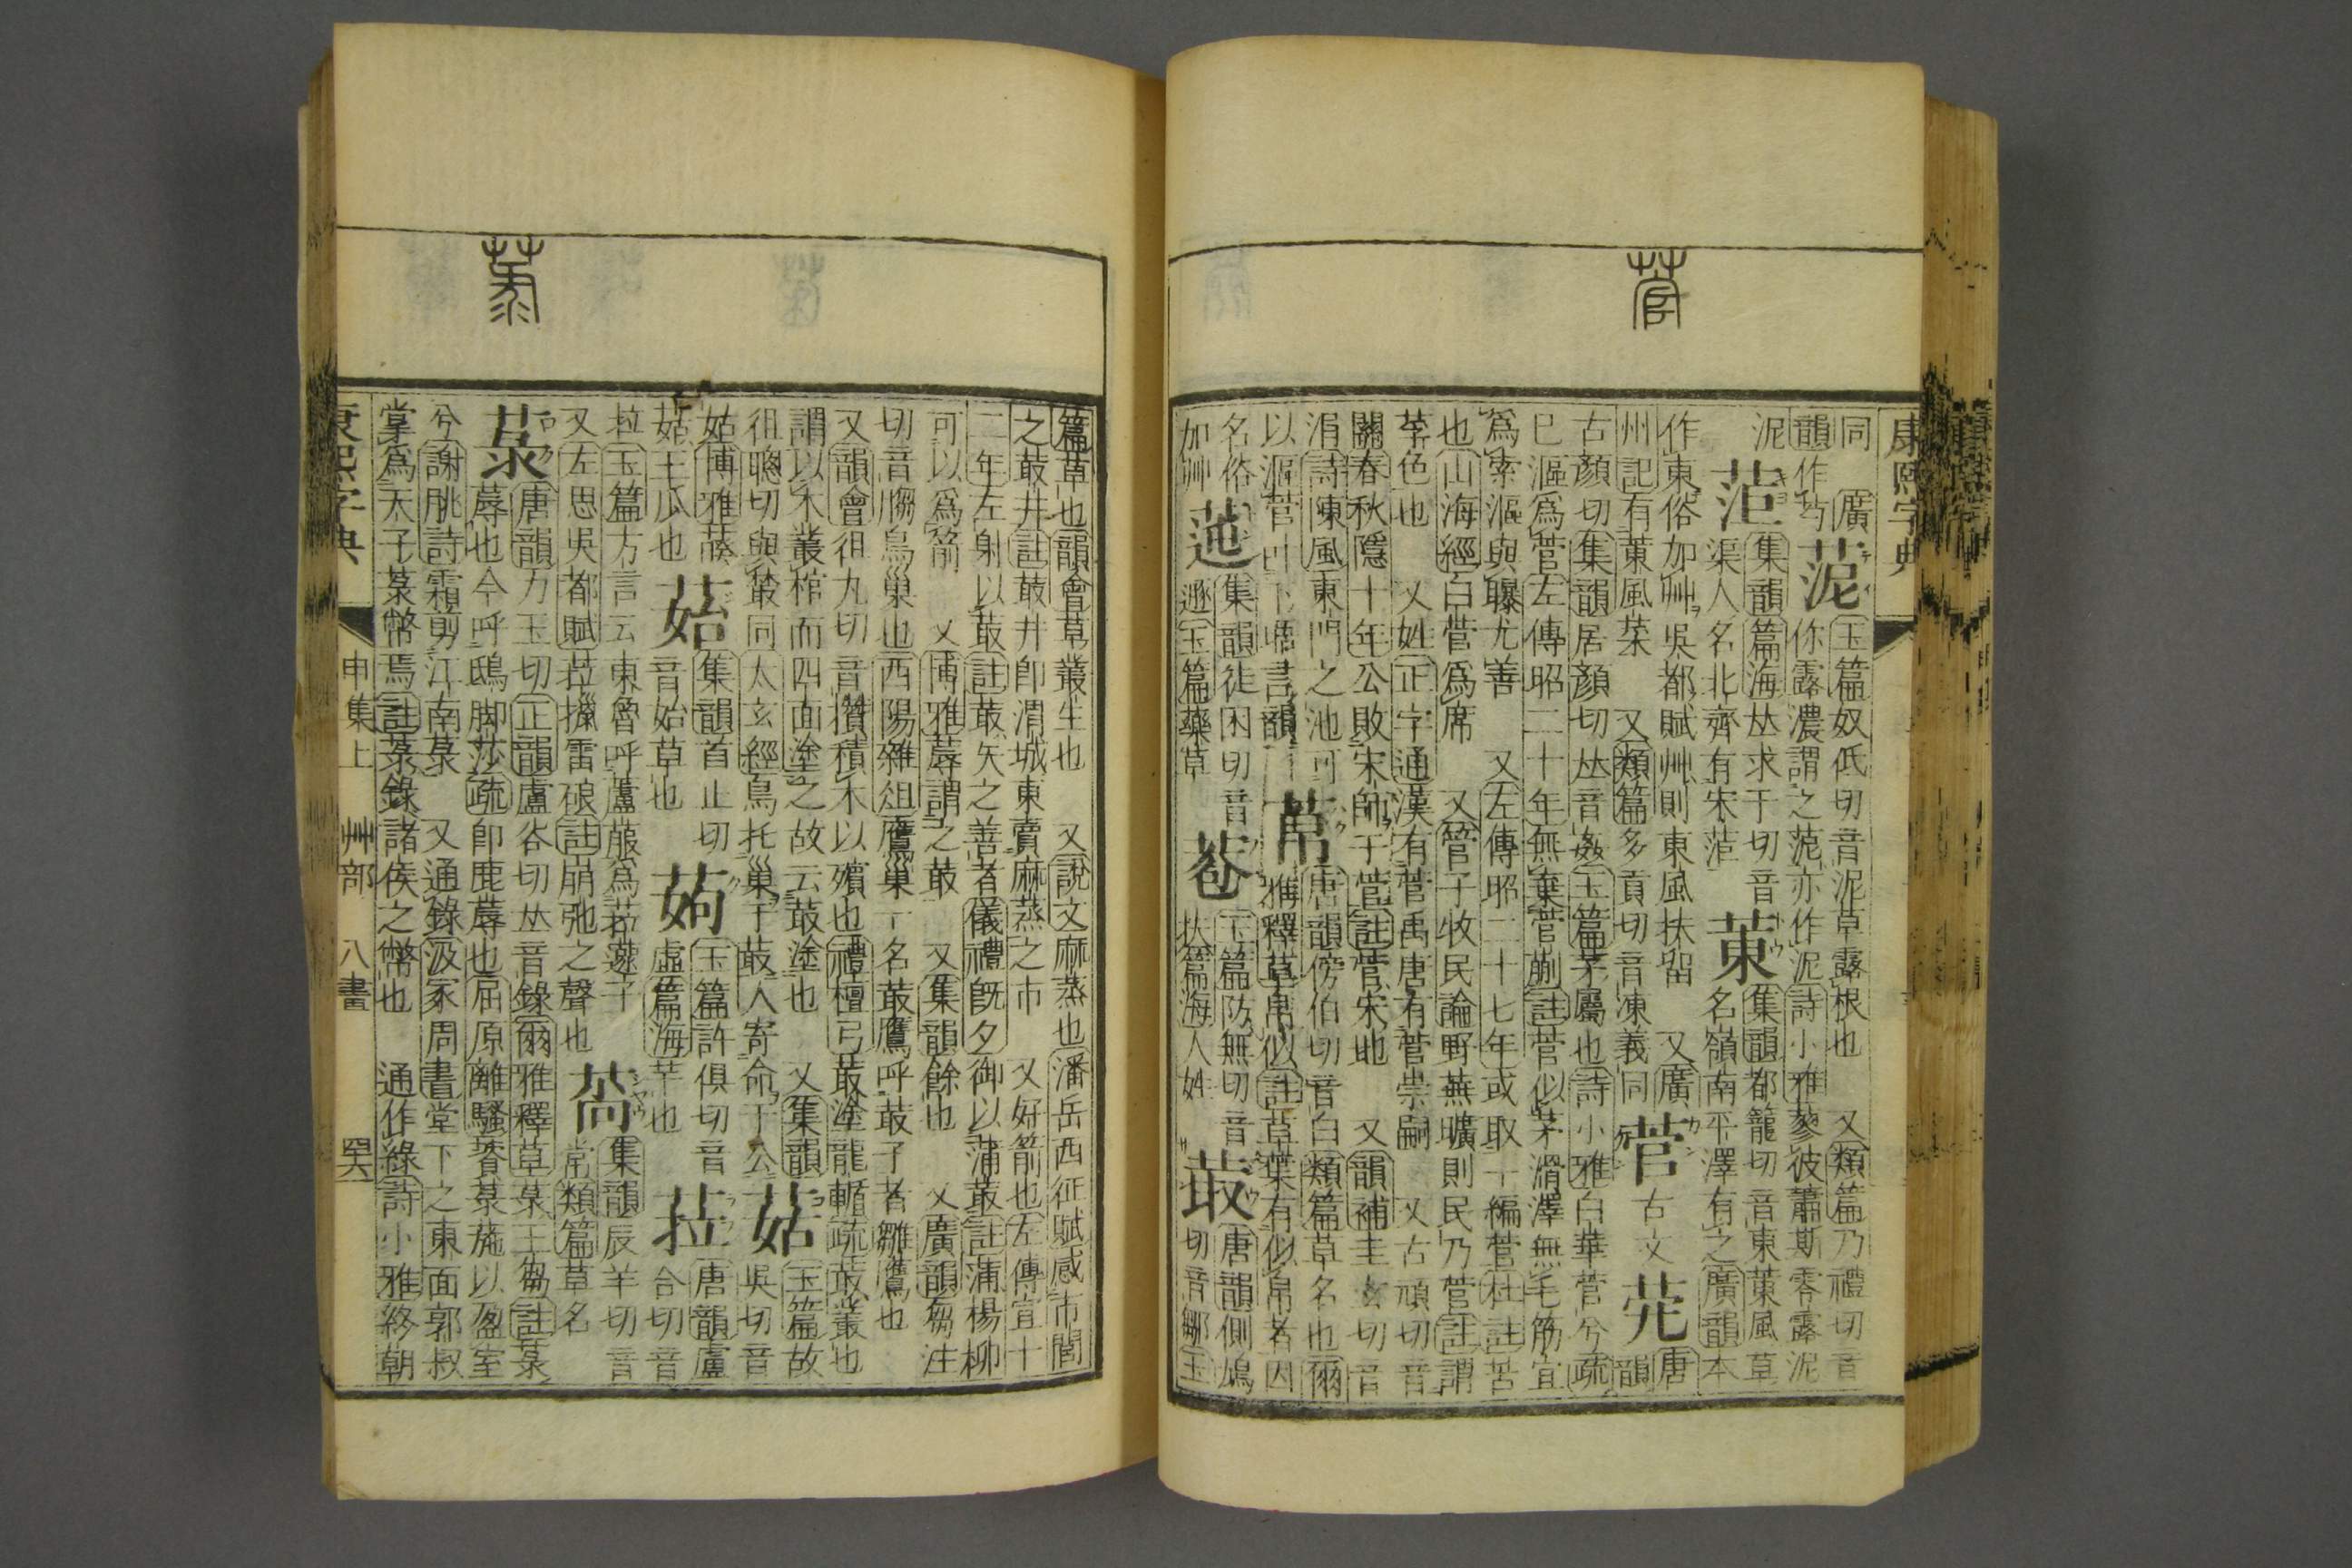 菅
康熙字典
同 廣 苨 玉篇奴低切音泥草露根也 又類篇乃禮切音
韻作 你露濃謂之苨亦作泥詩小雅蓼彼蕭斯零露泥
泥 集韻篇海𠀤求于切音 菄 集韻都籠切音東菄風草
渠人名北齊有宋 名嶺南平澤有之廣韻本
作東俗加艸吳都賦艸則東風扶留 又廣 菅 古文 唐
州記有菄風菜 又類篇多貢切音凍義同 韻
古顏切集韻居顏切𠀤音姦玉篇茅屬也詩小雅白華菅兮疏
巳漚爲菅左傳昭二十年無棄菅蒯註菅似茅滑澤無毛筋宜
爲索漚與曝尤善 又左傳昭二十七年或取一編菅杜註苦
也山海經白菅爲席 又管子牧民論野蕪曠則民乃菅註謂
茅色也 又姓正字通漢有菅禹唐有菅崇嗣 又古頑切音
關春秋隱十年公敗宋師于菅註菅宋地 又韻補圭玄切音
涓詩陳風東門之池可 唐韻傍伯切音白類篇草名也爾
以漚菅叶下晤言韻 雅釋草帛似註草葉有似帛者因
名俗 集韻徒困切音 玉篇防無切音 唐韻側鳩
加艸 遯玉篇藥草 扶篇海人姓 菆 切音鄒玉
菉
篇草也韻會草叢生也 又說文麻蒸也潘岳西征賦感市閭
之菆井註菆井卽渭城東賣麻蒸之市 又好箭也左傳宣十
二年左射以菆註菆矢之善者儀禮旣夕御以蒲菆註蒲楊柳
可以爲箭 又博雅蓐謂之菆 又集韻餘也 又廣韻芻注
切音㑳鳥巢也西陽雜俎鷹巢一名菆鷹呼菆子者雛鷹也
又韻會徂九切音攢積木以殯也禮檀弓菆塗龍輴疏菆叢也
謂以木叢棺而四面塗之故云菆塗也 又集韻 菇 玉篇故
徂聰切與叢同太玄經鳥托巢于菆人寄命于公 吳切音
姑博雅 集韻首止切 玉篇許俱切音 菈 唐韻盧
菇王瓜也 音始草也 虛篇海芋也 合切音
拉玉篇方言云東魯呼蘆菔爲菈 集韻辰羊切音
又左思吳都賦菈擸雷硠註崩弛之聲也 常類篇草名
菉 唐韻力玉切正韻盧谷切𠀤音錄爾雅釋草菉王芻註菉
蓐也今呼鴟脚莎疏卽鹿蓐也屈原離騷薋菉葹以盈室
兮謝朓詩霜剪江南菉 又通錄汲冢周書堂下之東面郭叔
掌爲天子菉幣焉註菉錄諸侯之幣也 通作綠詩小雅終朝
康熙字典 申集上 艸部 八畫